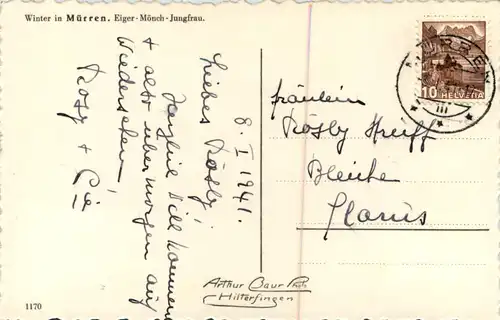 Winter in Mürren. Eiger-Mönch-Jungfrau.
8. I 1941.
Liebes Rösly!
Herzlich Willkommen
+ also übermorgen auf
Wiedersehen!
Rösy +
MÜRREN
10 HELVETIA
III
Fräulein
Rösly Streiff
Bleiche
Glarus
Arthur Baur Phot.
Hilterfingen
1170